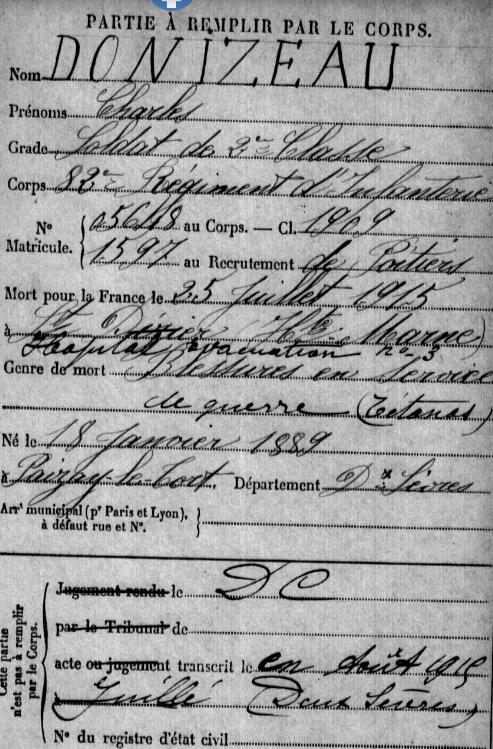 PARTIE À REMPLIR PAR LE CORPS.
Nom DONIZEAU
Prénoms Charles
Grade Soldat de 2e Classe
Corps 83e Régiment d'Infanterie
No Matricule. 05648 au Corps. — Cl. 1909
1597 au Recrutement de Poitiers
Mort pour la France le 25 juillet 1915
à St Dizier (Hte Marne)
Hôpital évacuation no 3
Genre de mort Blessures en service
de guerre (Tétanos)
Né le 18 Janvier 1889
à Paizay-le-Tort. Département Dx Sèvres
Arrt municipal (pr Paris et Lyon),
à défaut rue et No.
Cette partie
n'est pas à remplir
par le Corps.
Jugement rendu le DC
par le Tribunal de
acte ou jugement transcrit le en Août 1915
à Juillé (Deux Sèvres)
No du registre d'état civil